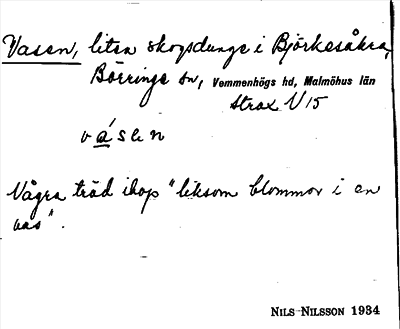 Vasen, liten skogsdunge i Björkesåkra,
Börringe sn, Vemmenhögs hd, Malmöhus län
Strax V 15
vásen
Några träd ihop "liksom blommor i en
vas".
NILS NILSSON 1934